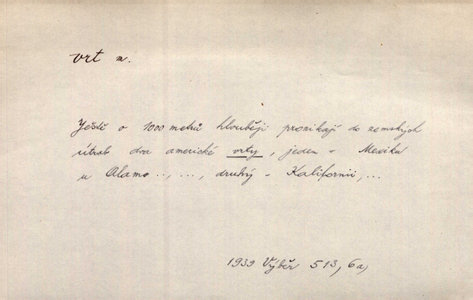 vrt m.
Ještě o 1000 metrů hlouběji pronikají do zemských
útrob dva americké vrty, jeden v Mexiku
u Alamo .., ..., druhý v Kalifornii, ...
1939 Výběr 513, 6a)